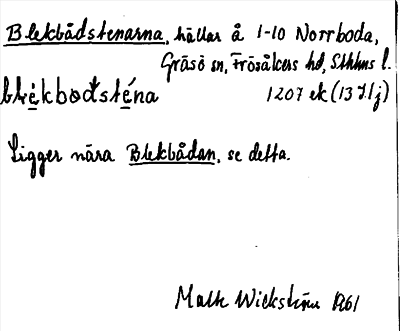 Blekbådstenarna, hällar å 1-10 Norrboda,
Gräsö sn, Frösåkers hd, Sthlms l.
blekbodsténa 1207 ek (13 Ilj)
Ligger nära Blekbådan, se detta.
Wickström 1961